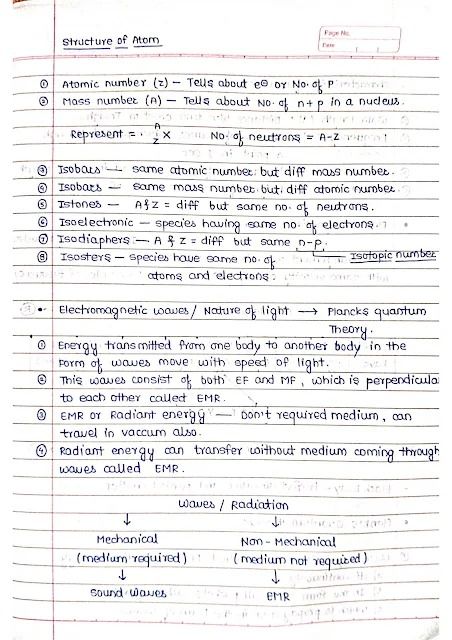 Structure of Atom
Page No.
Date
① Atomic number (z) — Tells about e⊖ or No. of P
② Mass number (A) — Tells about No. of n+p in a nucleus.
Represent = A z X No. of neutrons = A-Z
③ Isobars — same atomic number but diff mass number.
④ Isobars — same mass number but diff atomic number.
⑤ Istones — A & Z = diff but same no. of neutrons.
⑥ Isoelectronic — species having same no. of electrons.
⑦ Isodiaphers — A & Z = diff but same n-p.
Isotopic number
⑧ Isosters — species have same no. of
atoms and electrons.
• Electromagnetic waves / Nature of light → Plancks quantum
Theory.
① Energy transmitted from one body to another body in the
form of waves move with speed of light.
② This waves consist of both EF and MF, which is perpendicula
to each other called EMR.
③ EMR or Radiant energy — Don't required medium, can
travel in vaccum also.
④ Radiant energy can transfer without medium coming through
waves called EMR.
Waves / Radiation
↓ ↓
Mechanical Non-Mechanical
(medium required) (medium not required)
↓ ↓
Sound waves EMR